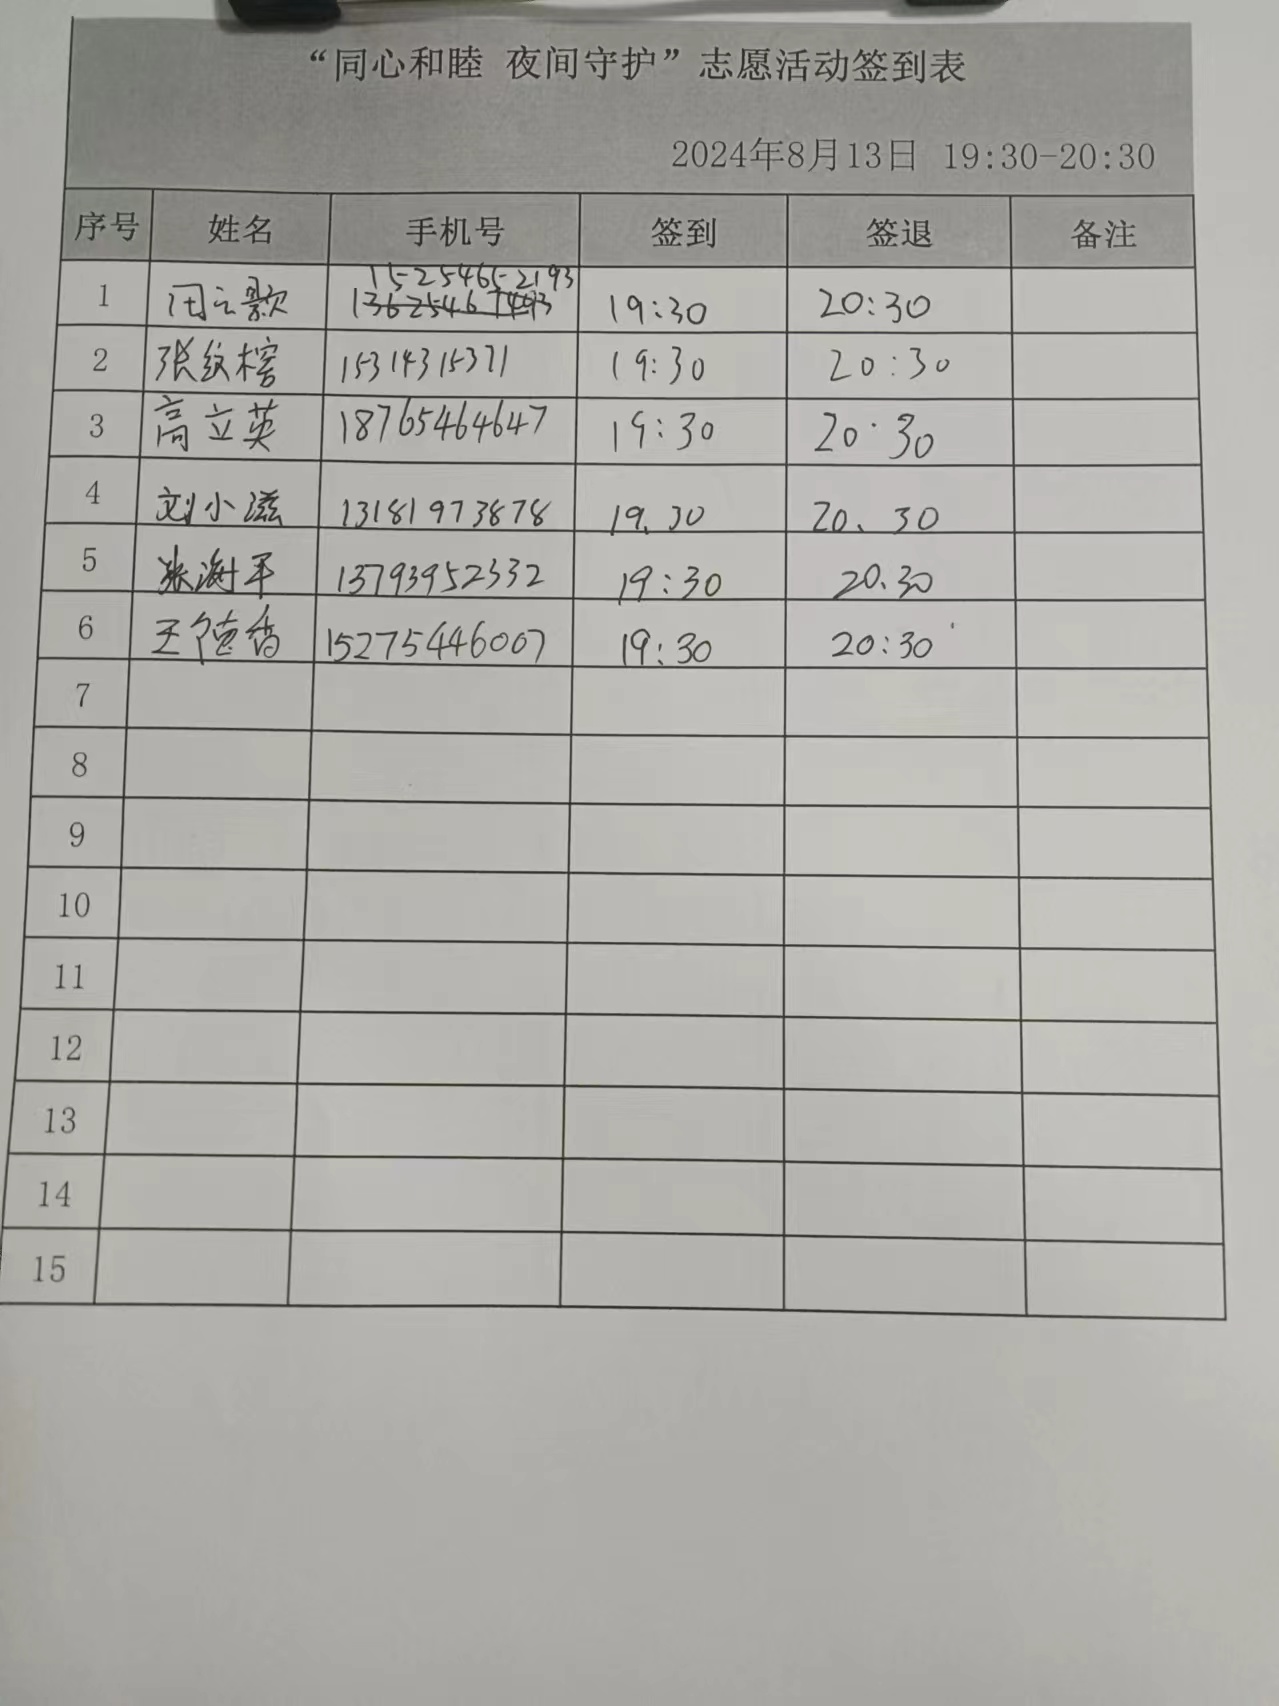 “同心和睦 夜间守护”志愿活动签到表
2024年8月13日 19:30-20:30
序号 姓名 手机号 签到 签退 备注
15254652193
1 19:30 20:30
2 张纹榕 15314315371 19:30 20:30
3 高立英 18765464647 19:30 20:30
4 刘小滋 13181973878 19.30 20.30
5 张海平 13793952332 19:30 20.30
6 王德香 15275446007 19:30 20:30
7
8
9
10
11
12
13
14
15